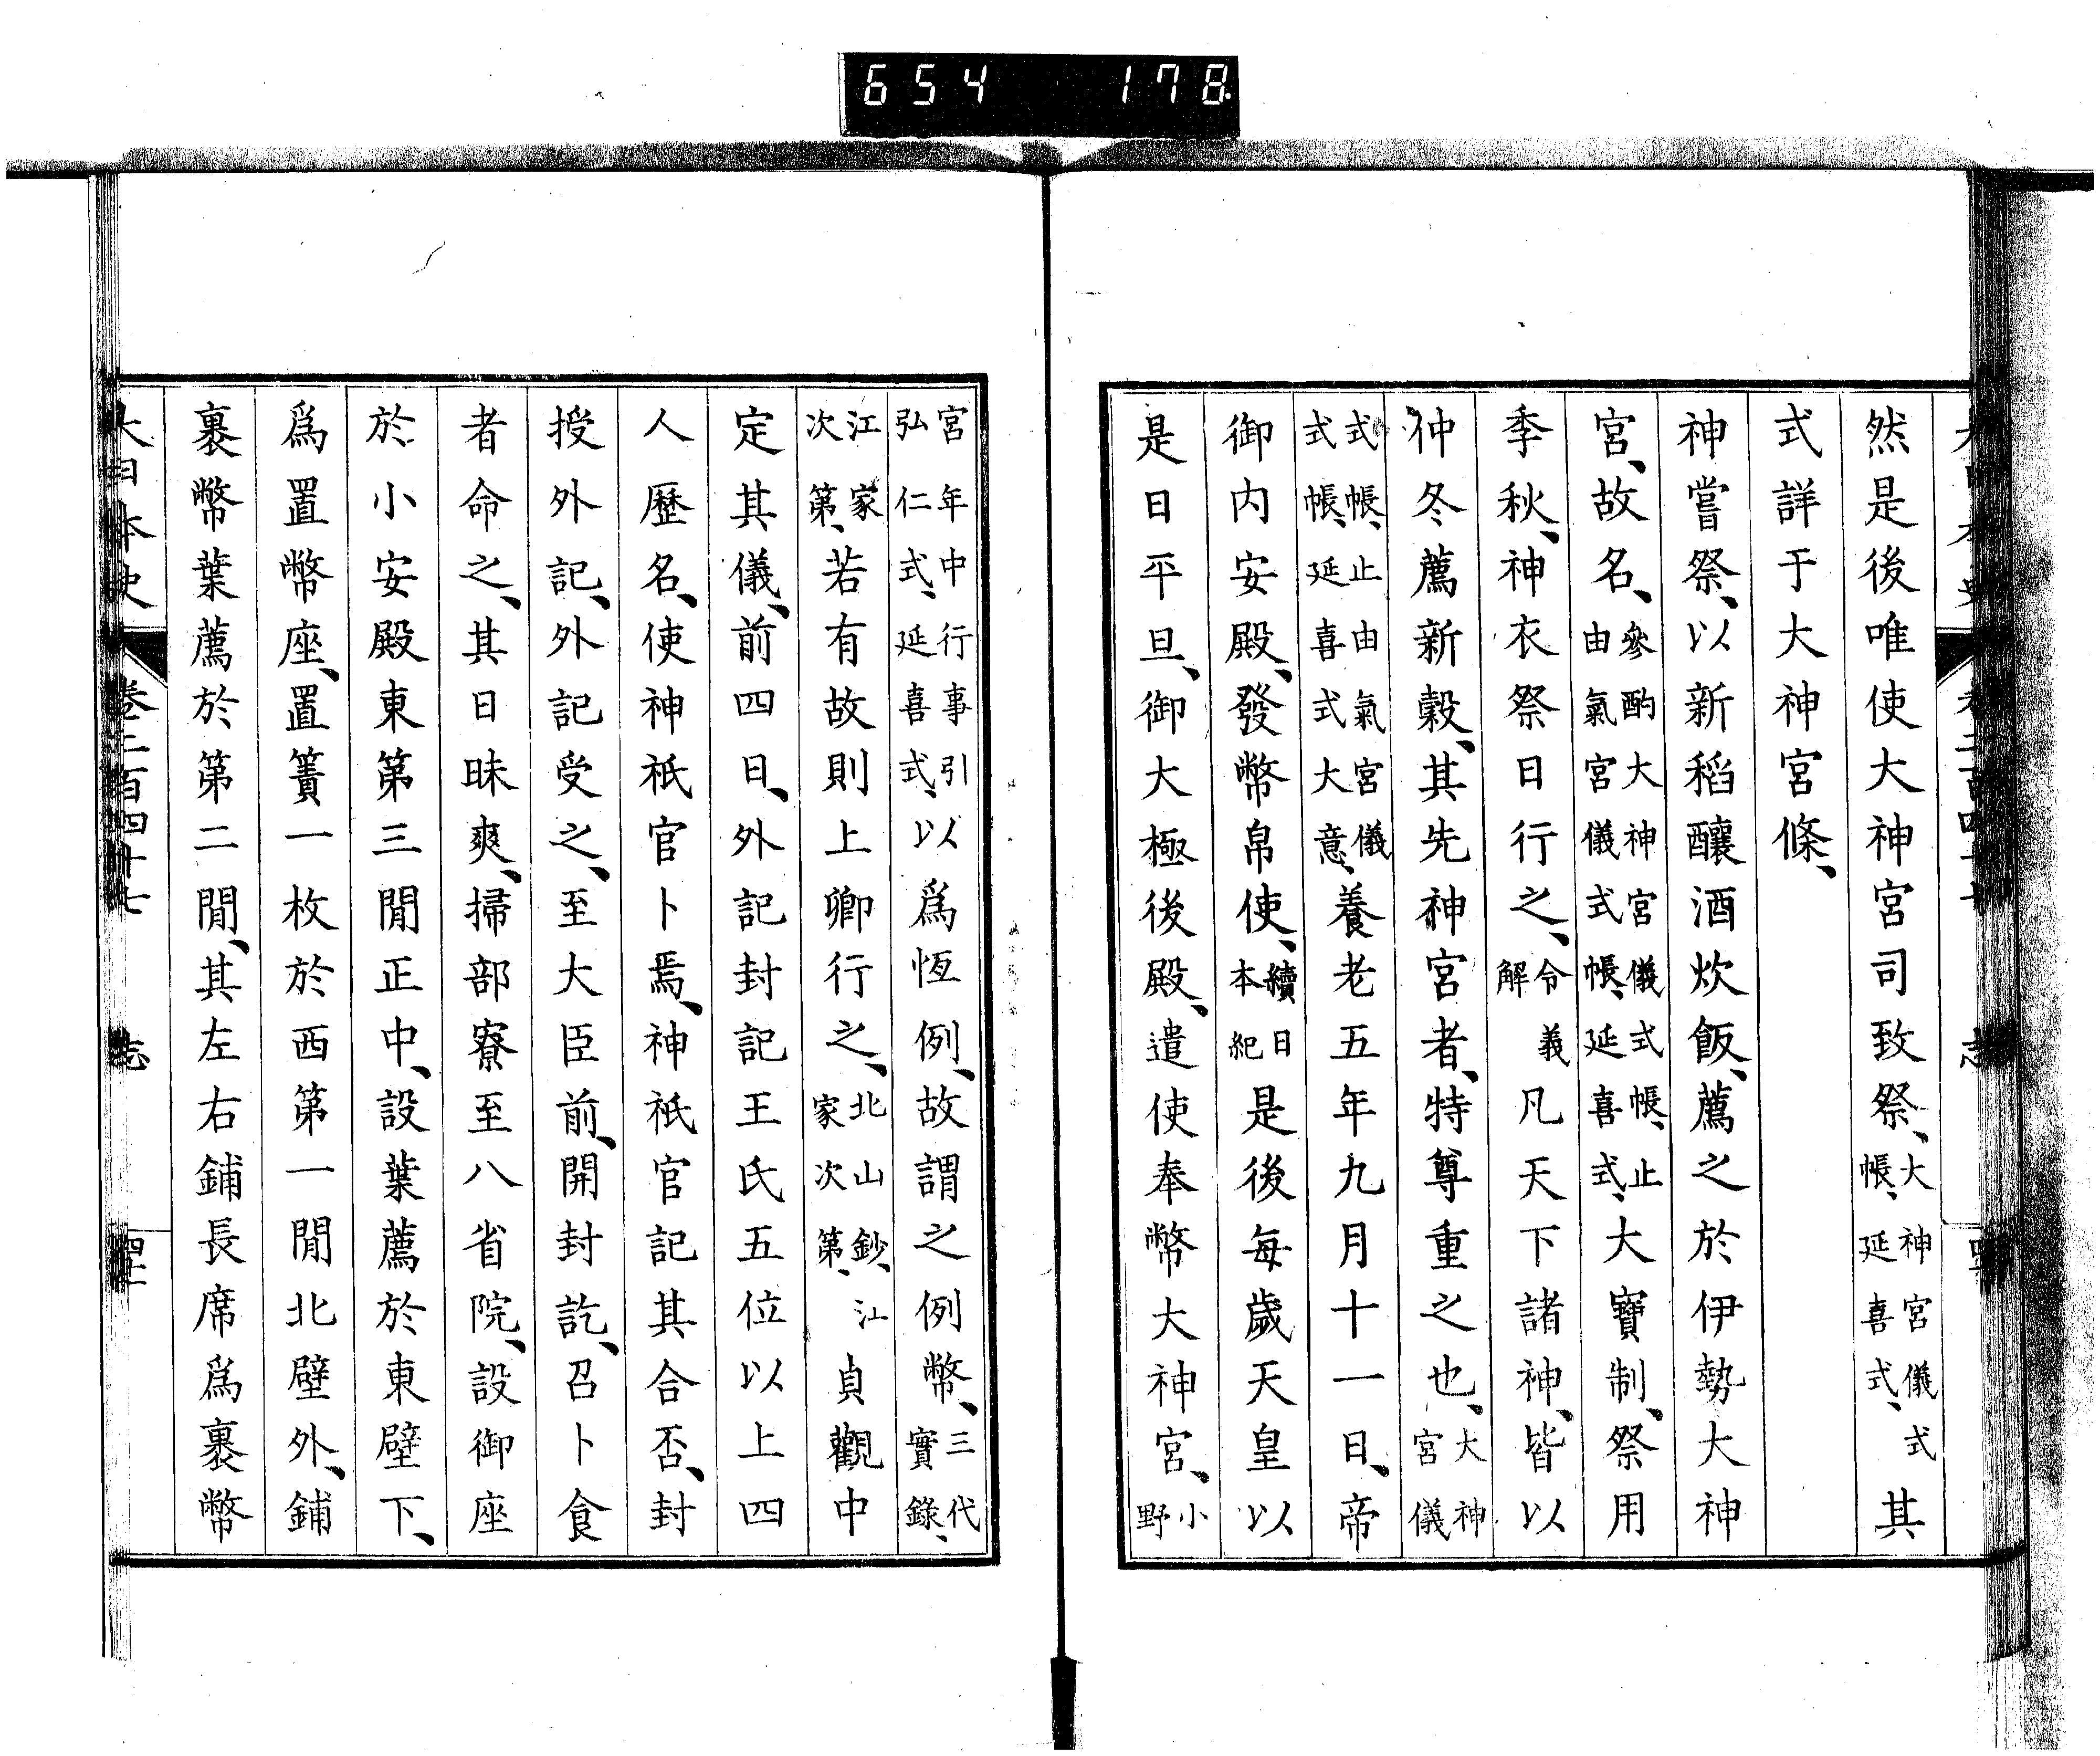 654 178
然是後唯使大神宮司致祭、大神宮儀式帳、延喜式、其
式詳于大神宮條、
神嘗祭、以新稻釀酒炊飯、薦之於伊勢大神
宮、故名、參酌大神宮儀式帳、止由氣宮儀式帳、延喜式、大寶制、祭用
季秋、神衣祭日行之、令義解凡天下諸神、皆以
仲冬薦新穀、其先神宮者、特尊重之也、大神宮儀
式帳、止由氣宮儀式帳、延喜式大意、養老五年九月十一日、帝
御内安殿、發幣帛使、續日本紀是後每歲天皇以
是日平旦、御大極後殿、遣使奉幣大神宮、小野
宮年中行事引弘仁式、延喜式、以爲恆例、故謂之例幣、三代實錄、
江家次第、若有故則上卿行之、北山鈔、江家次第、貞觀中
定其儀、前四日、外記封記王氏五位以上四
人歷名、使神祇官卜焉、神祇官記其合否、封
授外記、外記受之、至大臣前、開封訖、召卜食
者命之、其日昧爽、掃部寮至八省院、設御座
於小安殿東第三閒正中、設葉薦於東壁下、
爲置幣座、置簀一枚於西第一閒北壁外、鋪
裹幣葉薦於第二閒、其左右鋪長席爲裹幣
大日本史 卷二百四十七 志